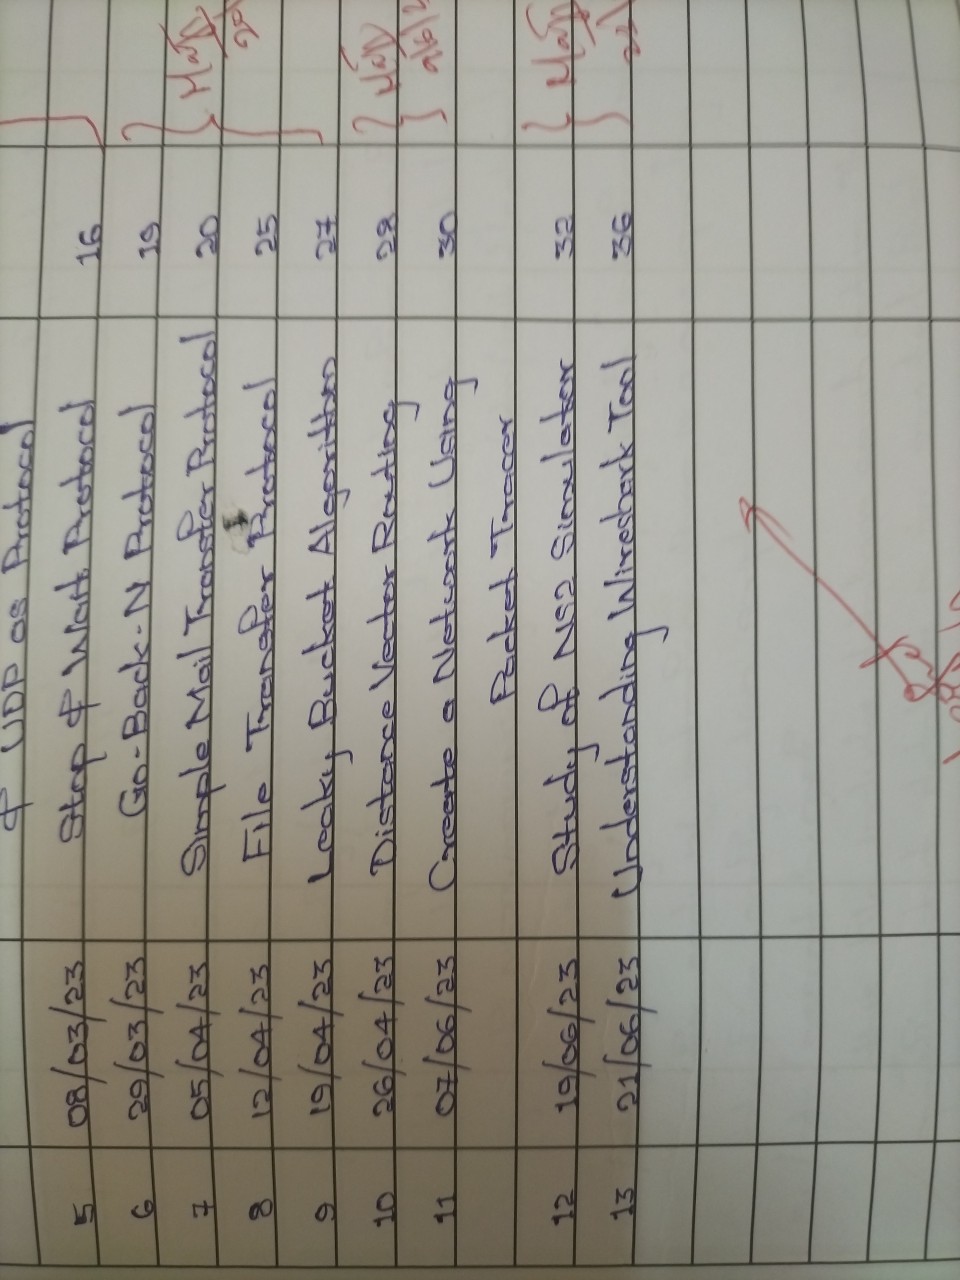 & UDP as Protocol
5 08/03/23 Stop & Wait Protocol 16
6 29/03/23 Go-Back-N Protocol 19
7 05/04/23 Simple Mail Transfer Protocol 20
8 12/04/23 File Transfer Protocol 25
9 19/04/23 Leaky Bucket Algorithm 27
10 26/04/23 Distance Vector Routing 28
11 07/06/23 Create a Network Using 30
Packet Tracer
12 19/06/23 Study of NS2 Simulator 32
13 21/06/23 Understanding Wireshark Tool 36